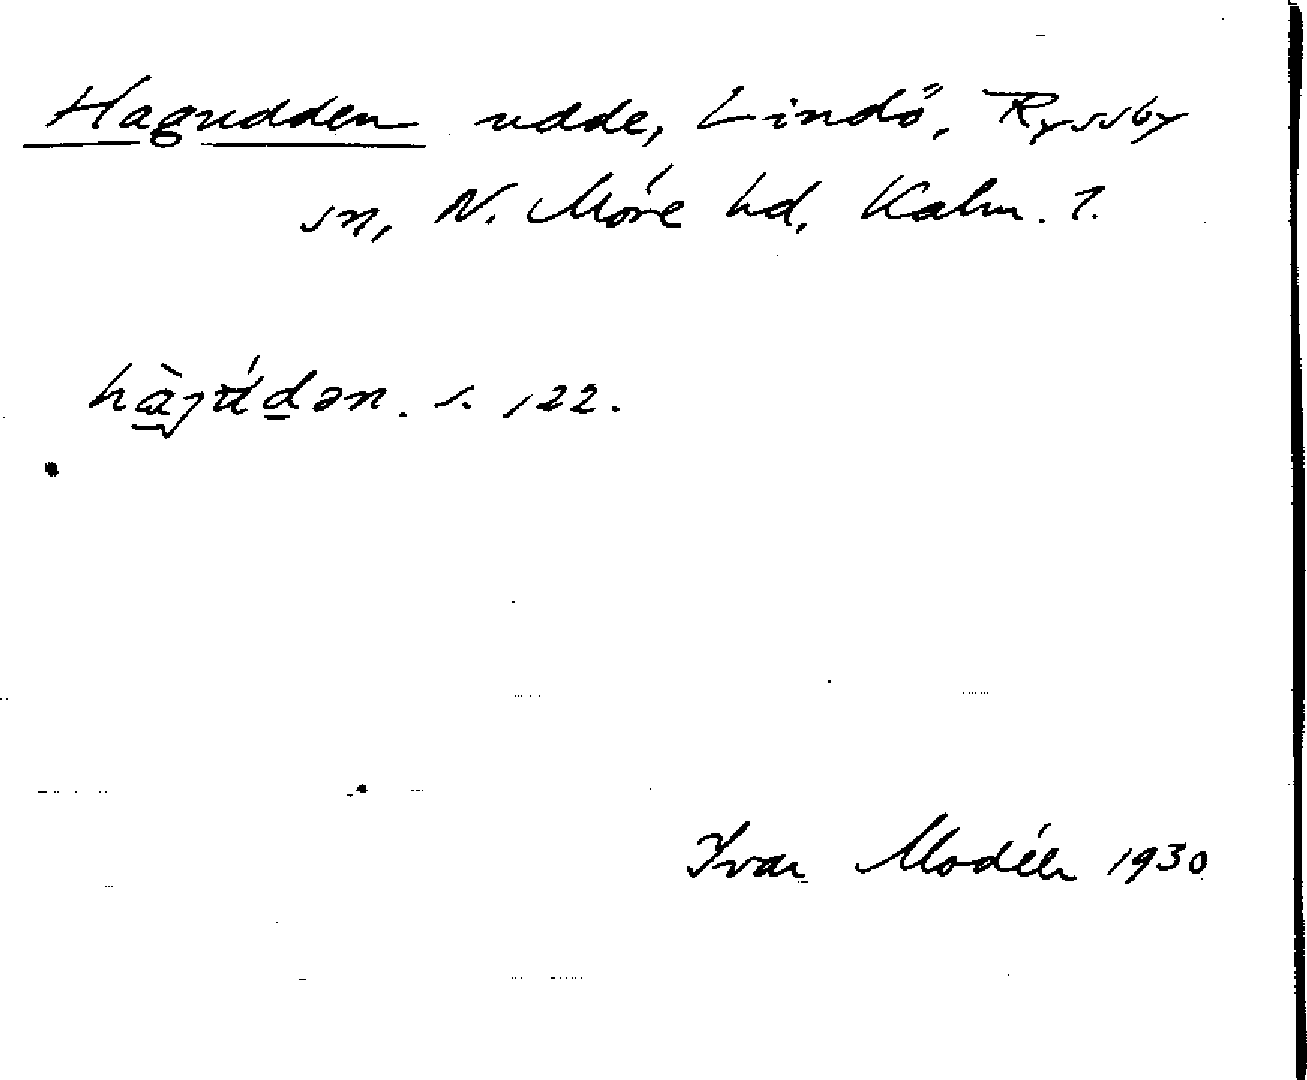 Hagudden udde, Lindö, Ryssby
sn, N. Möre hd, Kalm. l.
hàgúdən. s. 122.
Ivar Modéer 1930